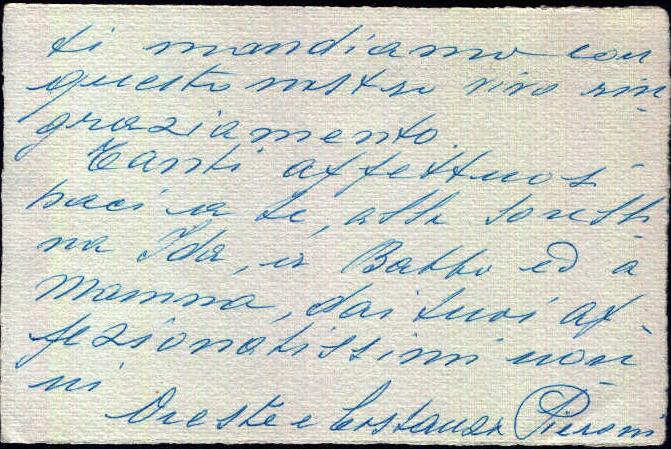 ti mandiamo con
questo nostro vivo rin-
graziamento.
Tanti affettuosi
baci a te, alla sorelli-
na Ida, a Babbo ed a
Mamma, dai tuoi af-
fezionatissimi non-
ni
Oreste e Costanza